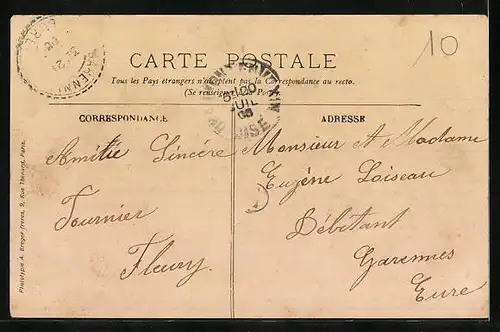 10
CARTE POSTALE
Tous les Pays étrangers n'acceptent pas la Correspondance au recto.
(Se renseigner à la Poste)
CORRESPONDANCE
ADRESSE
Amitié Sincère
Tournier
Fleury.
Monsieur et Madame
Eugène Loiseau
Débitant
Garennes
Eure
Phototypie A. Breger frères, 9, Rue Thénard, Paris.